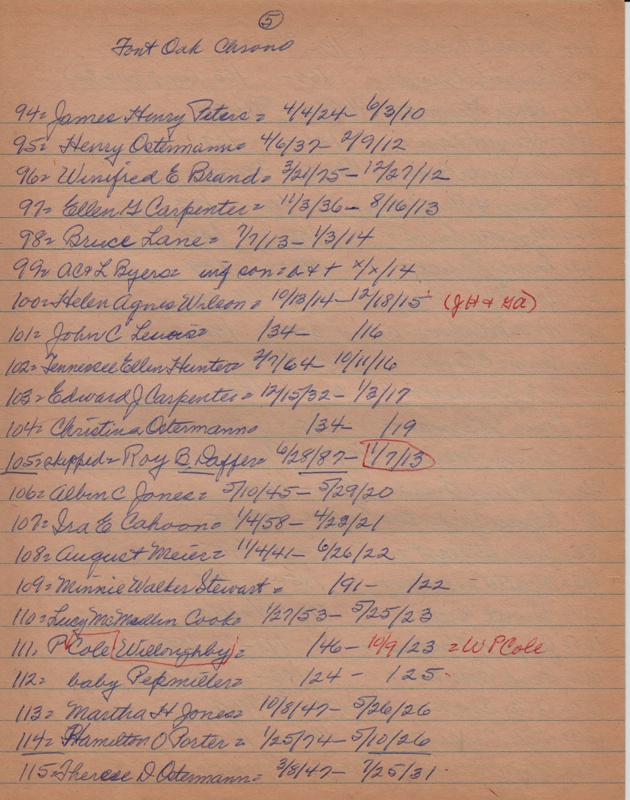 5
Font Oak Chrono
94= James Henry Peters = 4/4/24 - 6/3/10
95= Henry Ostermann = 4/6/37 - 2/9/12
96= Winifred E Brand = 3/21/75 - 12/27/12
97= Ellen G Carpenter = 11/3/36 - 8/16/13
98= Bruce Lane = 7/7/13 - 1/3/14
99= AC & L Byers = inf son = x/x/14
100= Helen Agnes Wilson = 10/13/14 - 12/18/15 (JH & GA)
101= John C Lewis = /34 - /16
102= Tennessee Ellen Hunter = 2/7/64 - 10/11/16
103= Edward J Carpenter = 12/15/32 - 1/3/17
104= Christina Ostermann = /34 - /19
105= skipped = Roy B. Daffer = 6/28/87 - 1/7/13
106= Albin C Jones = 5/10/45 - 5/29/20
107= Ira E Cahoon = 1/4/58 - 4/23/21
108= August Meier = 11/4/41 - 6/26/22
109= Minnie Walker Stewart = /91 - /22
110= Lucy McMadlin Cook = 1/27/53 - 5/25/23
111. P Cole Willoughby = /46 - 10/9/23 = W P Cole
112= baby Pepmiller = 124 - 125.
113= Martha H Jones = 10/8/47 - 5/26/26
114= Hamilton O Porter = 1/25/74 - 5/10/26
115= Therese D Ostermann = 3/8/47 - 7/25/31.